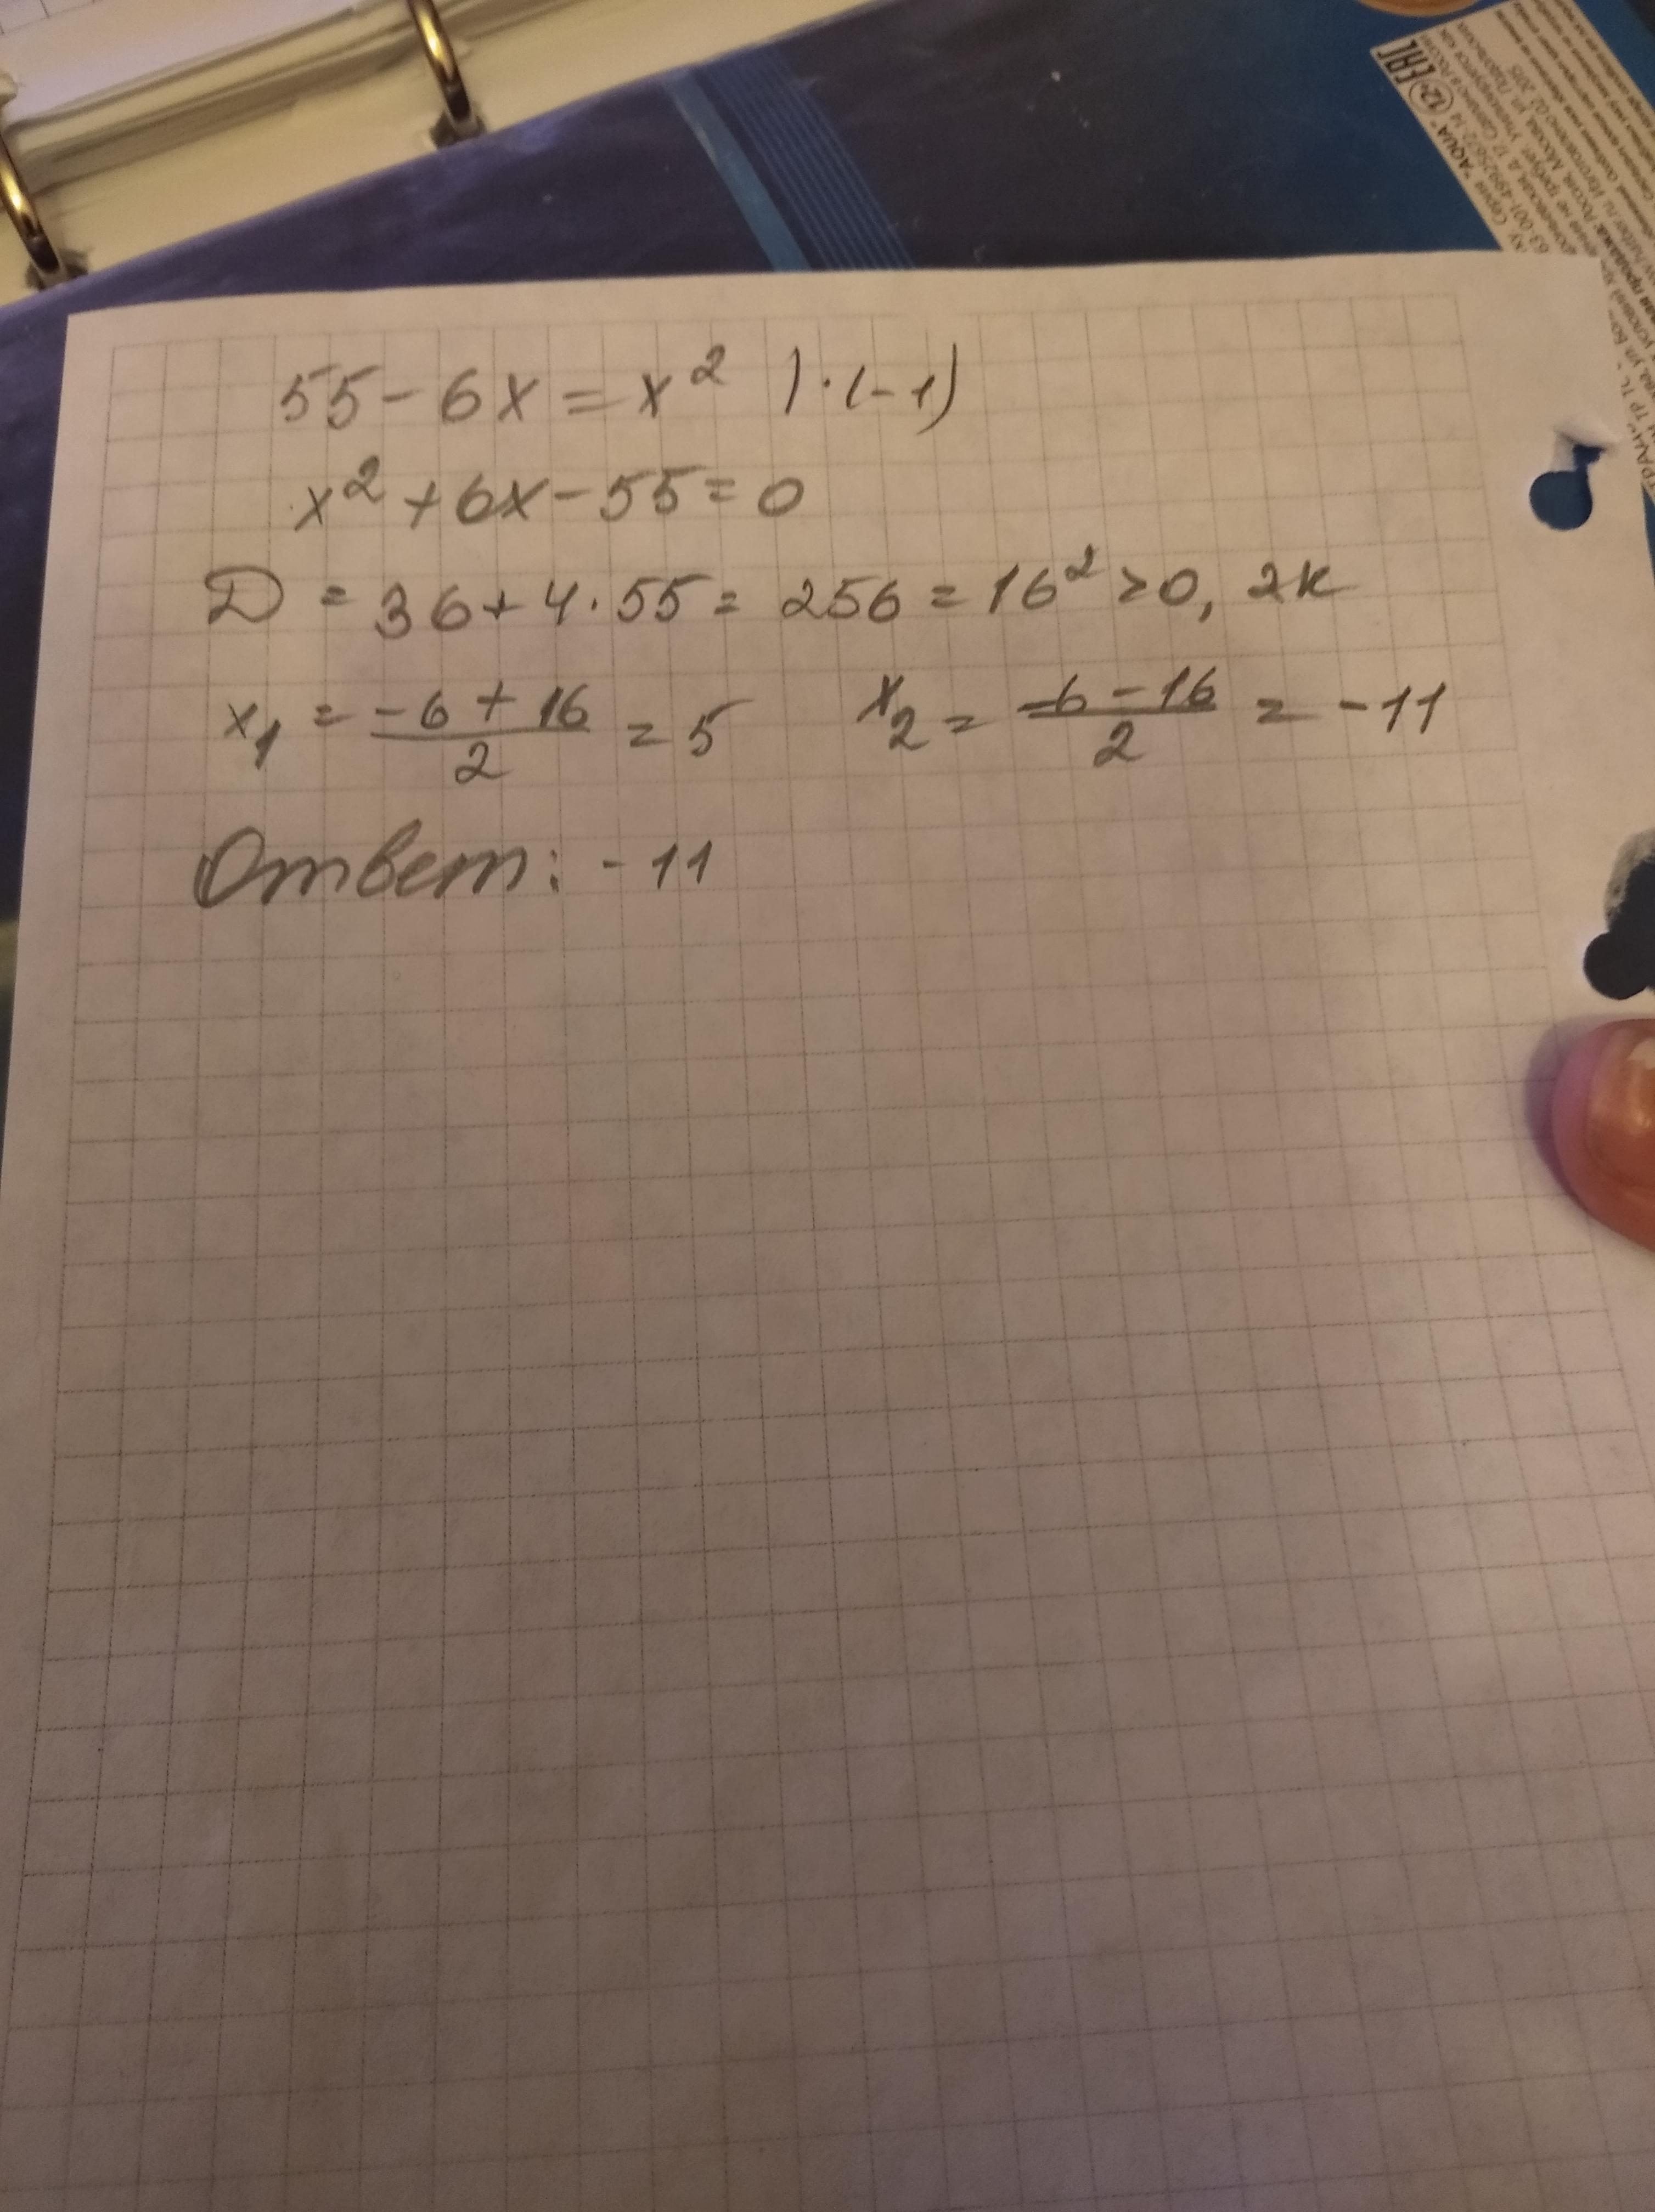 55 - 6x = x² | · (-1)
x² + 6x - 55 = 0
D = 36 + 4 · 55 = 256 = 16² > 0, 2к
x₁ = (-6 + 16)/2 = 5 x₂ = (-6 - 16)/2 = -11
Ответ: -11
ЕАС
Серия "AQUA"